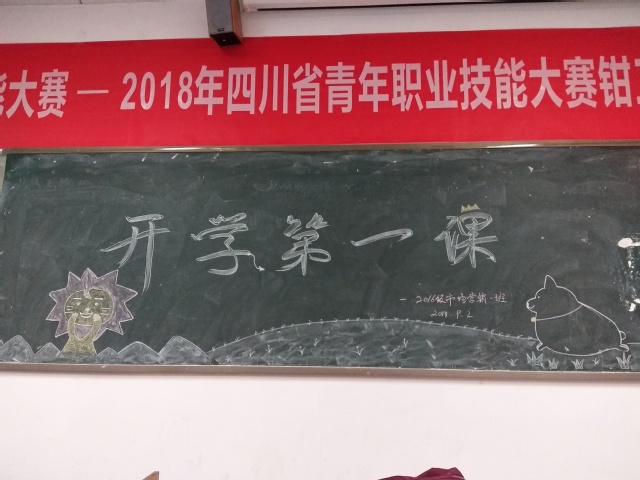 能大赛 — 2018年四川省青年职业技能大赛钳工
开学第一课
— 2016级市场营销一班
2018.9.2